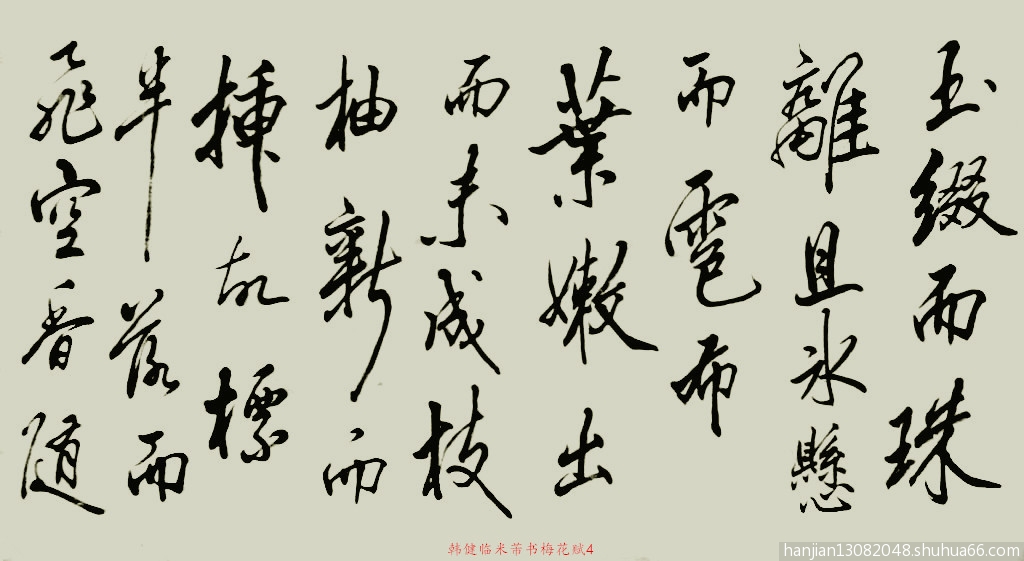 玉綴而珠
離且氷懸
而雹布
葉嫩出
而未成枝
抽新而
插故標
半落而
飛空香随
韩健临米芾书梅花赋4
hanjian13082048.shuhua66.com